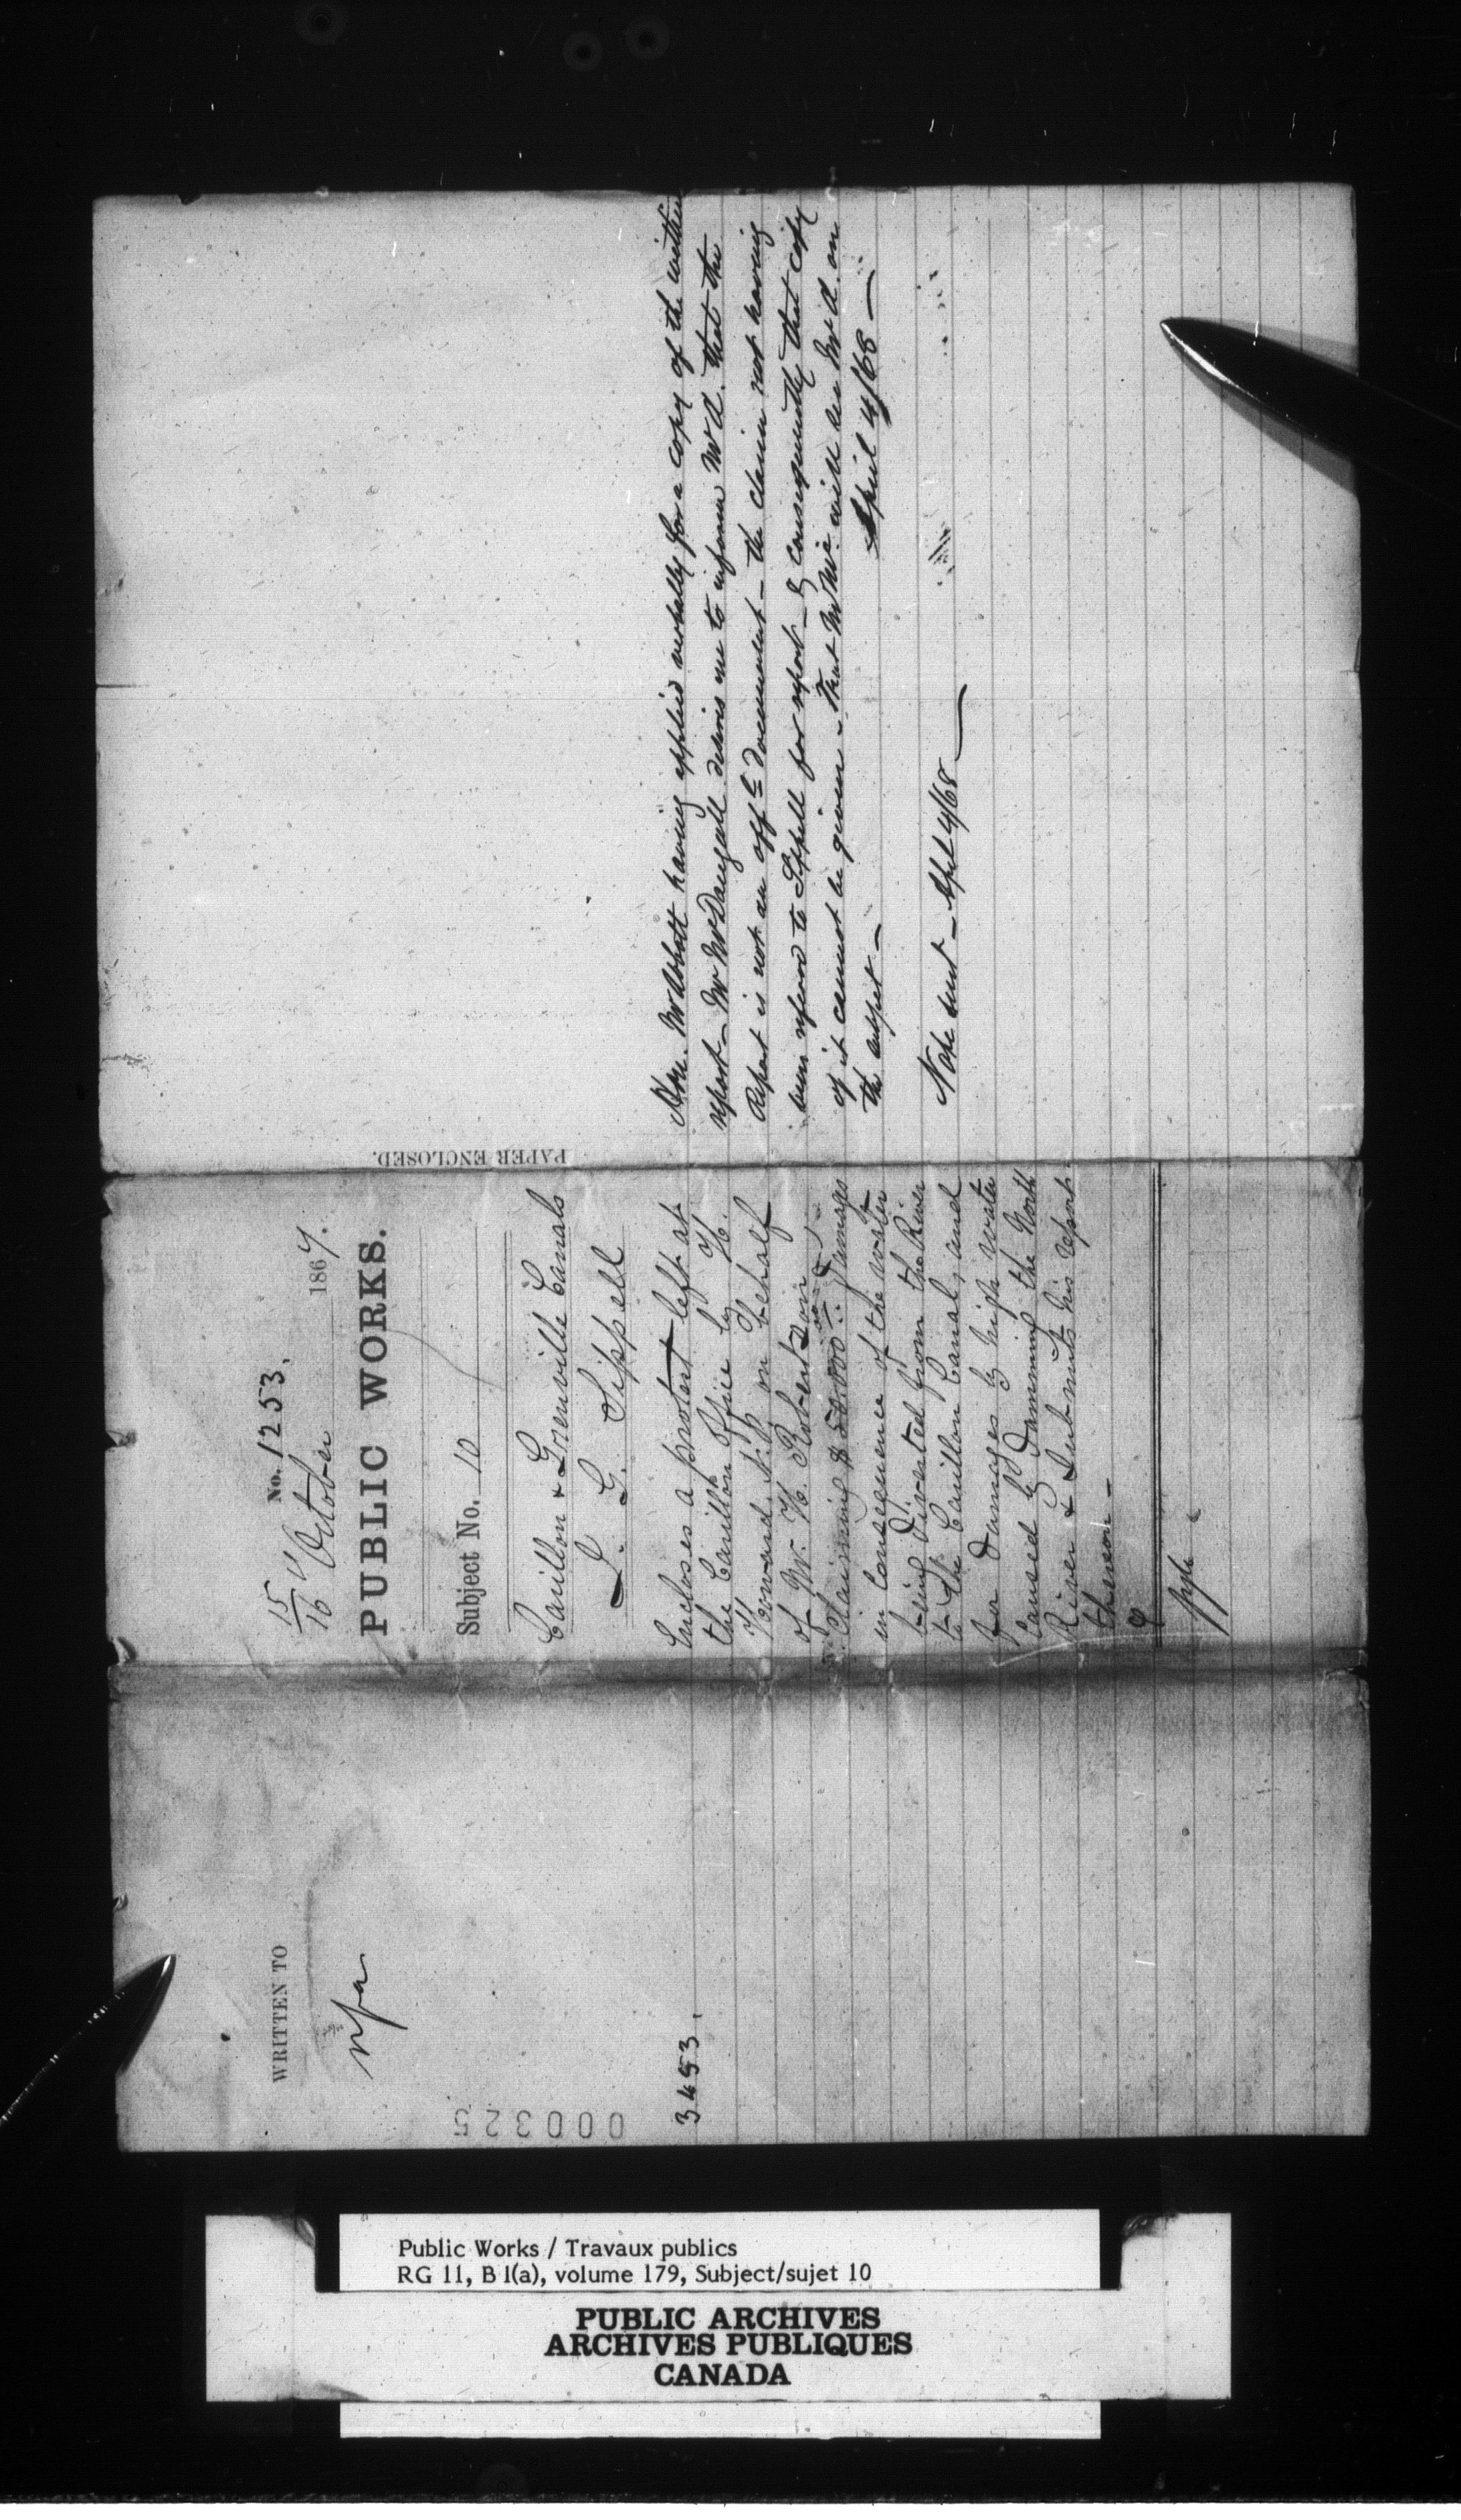 WRITTEN TO
nfa
000325
3453.
No. 1253.
15/16 October 1867.
PUBLIC WORKS.
Subject No. 10
Carillon & Grenville Canals
J. G. Sippell
Encloses a protest left at
the Carillon Office by H.
Howard N.P. on behalf
of W. H. Robertson
Claiming $50,000 :: damages
in Consequence of the water
being diverted from the River
to the Carillon Canal, and
for damages by high water
Caused by damming the North
River & Submits his report
thereon —
PAPER ENCLOSED.
Hon. Mr Abbott having applied verbally for a copy of the within
report — Mr McDougall desires me to inform Mr A. that the
Report is not an offl document — the claim not having
been referred to Sippell for report — & consequently that copy
of it cannot be given — That Mr Mc will see Mr A. on
the subject —
April 4/68 —
Note sent — Apl 4/68 —
Public Works / Travaux publics
RG 11, B 1(a), volume 179, Subject/sujet 10
PUBLIC ARCHIVES
ARCHIVES PUBLIQUES
CANADA